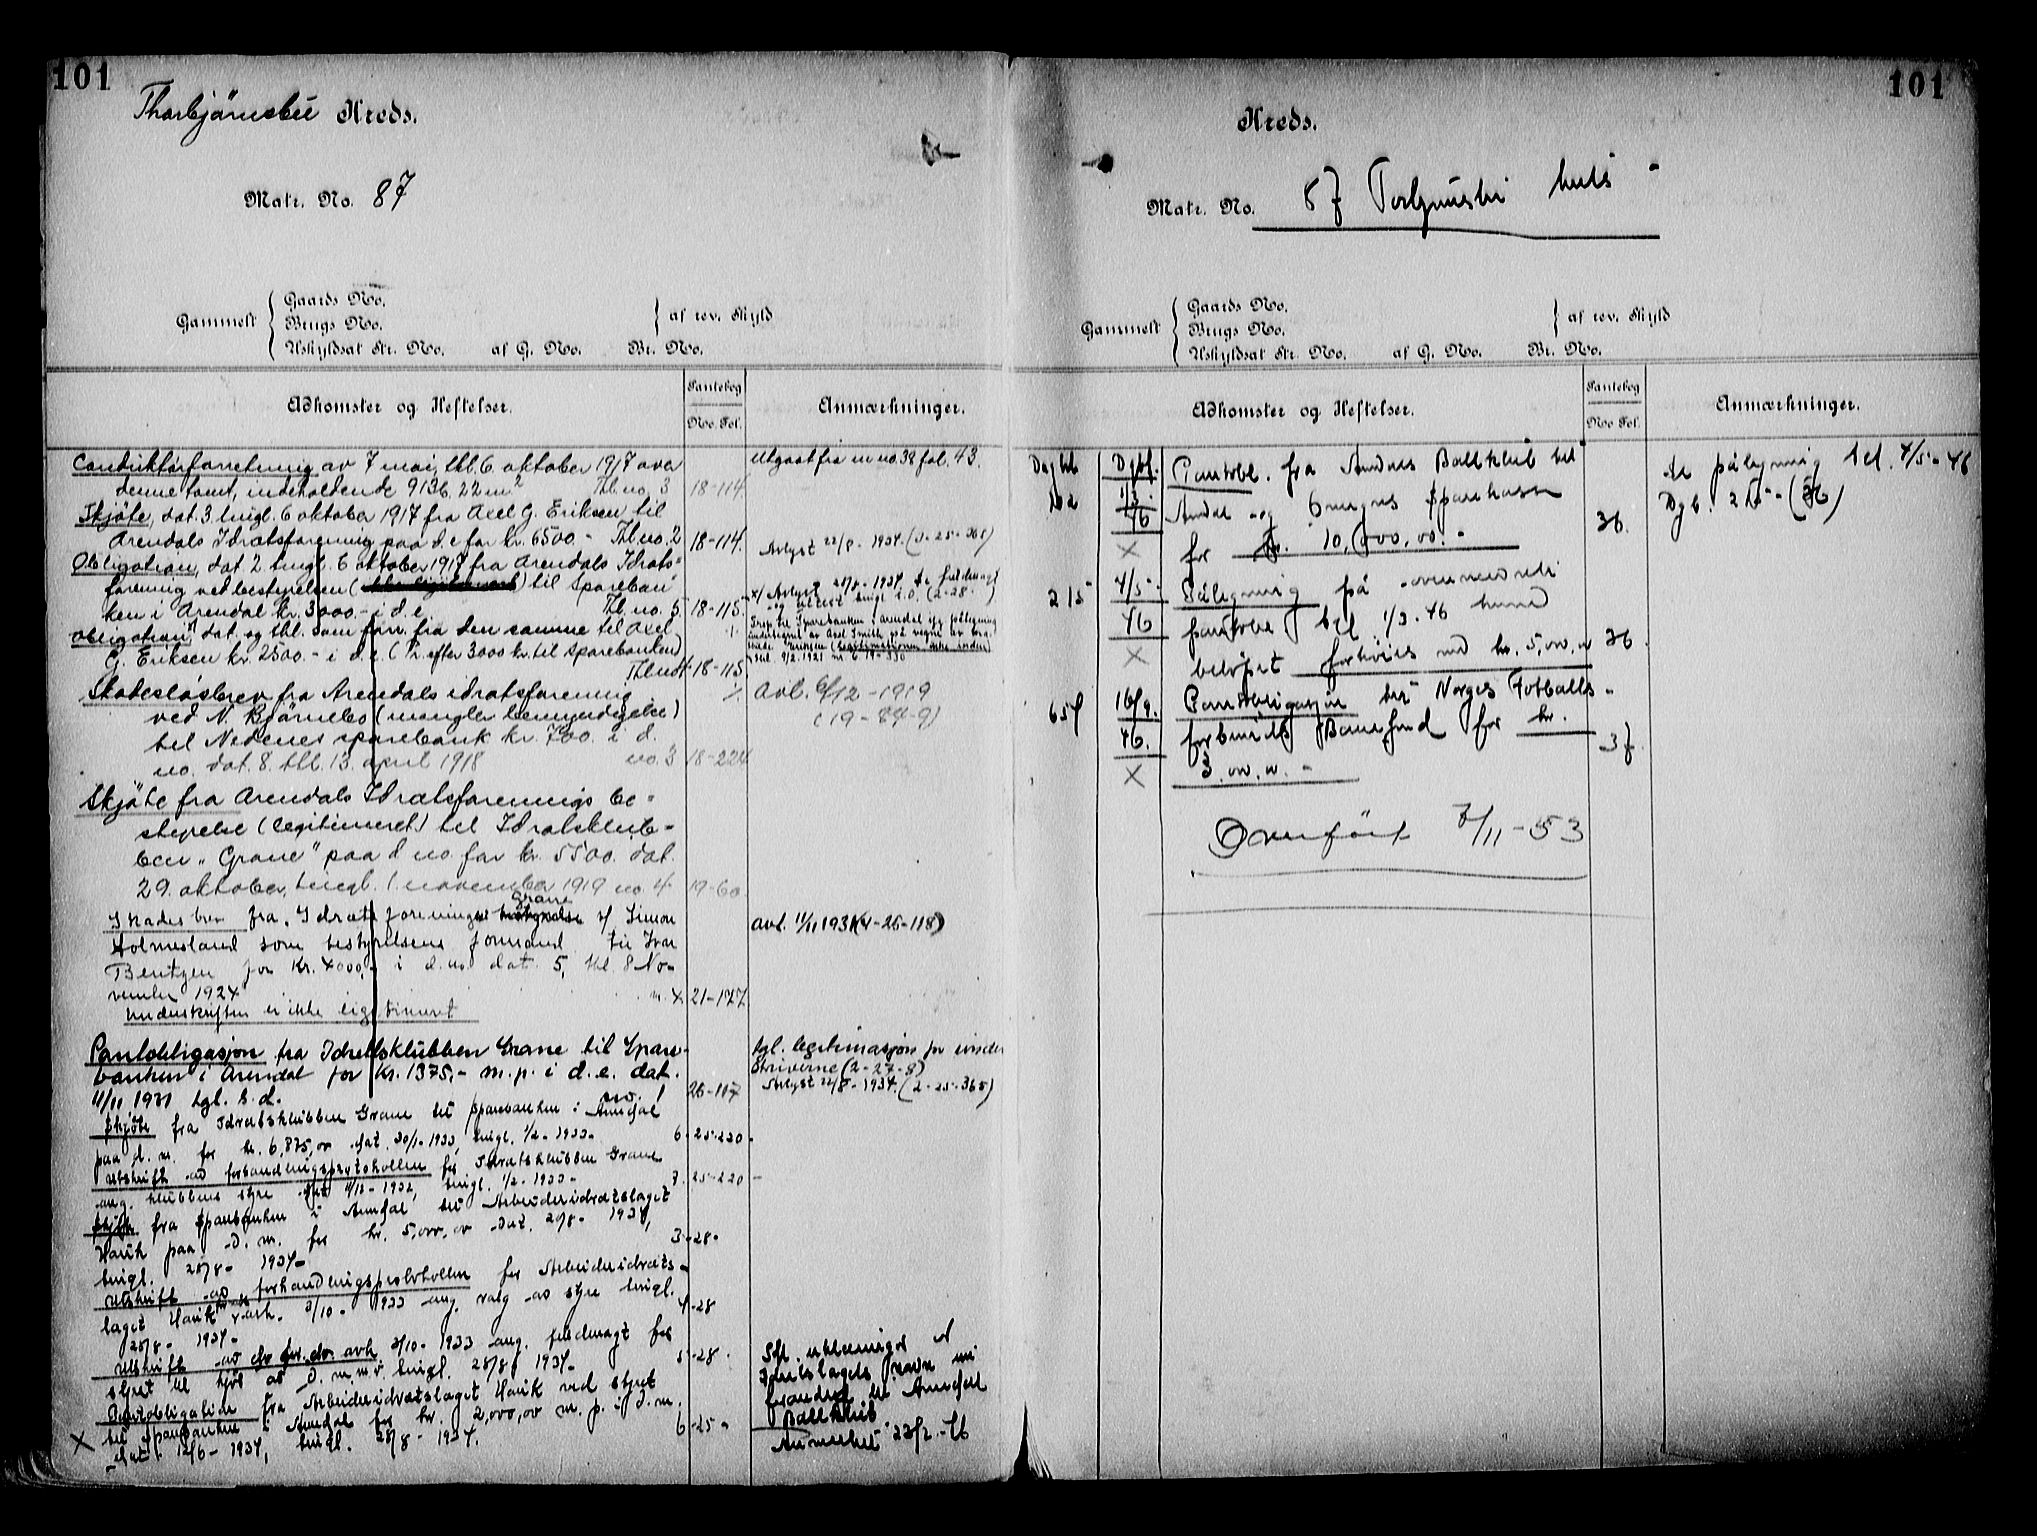 101
Thorbjørnsbu Kreds.
Matr. No. 87
Gammelt
Gaards No.
Brugs No.
Uskyldsat Str. No. af G. No. Br. No.
af rev. Skyld
Adkomster og Heftelser.
Pantebog
No. Fol.
Anmærkninger.
Conduktørforretning av 7 mai, tbl. 6 oktober 1917 over
denne tomt, indeholdende 9136,22 m2 Tbl. no. 3 18-114.
Utgaat fra m no. 38 fol. 43.
Skjøte, dat. 3. tingl. 6 oktober 1917 fra Axel G. Eriksen til
Arendals Idrætsforening paa d. e for kr. 6500.- Tbl. no. 2 18-114.
Obligation, dat 2. tingl. 6 oktober 1917 fra Arendals Idræts-
forening ved bestyrelsen ( ) til Sparebanken
ken i Arendal kr. 3000.- i d. e. Tbl. no. 5 18-115.
Avlyst 22/8 - 1934. (2-25-365)
Obligation, dat. og tbl. som forr. fra den samme til Axel
G. Eriksen kr. 2500.- i d. e. (Pr. efter 3000 kr. til sparebanken)
18-115.
x/ Avlyst 28/8 - 1934.
Skadesløsbrev fra Arendals idrætsforening
ved N. Bjørnebo (mangler bemyndigelse)
til Nedenes sparebank kr. 700. i d.
no. dat. 8. tbl. 13. april 1918 no. 3 18-224
Avl. 6/12 - 1919
(19-84-9)
Skjøte fra Arendals Idrætsforenings be-
styrelse (legitimeret) til Idrætsklub-
ben „Grane" paa d no. for kr. 5500. dat.
29. oktober, tingl. 1. november 1919 no. 4 19-60.
Skadesbrev fra Idrætsforeningen Grane v/ Simon
Holmesland som bestyrelsens formand til Ivar
Bentzen for Kr. 4000,- i d. no. dat. 5, tbl. 8 No-
vember 1924 n. 4 21-177
Underskriften er ikke legitimert
avl. 11/11 1931 (4-26-118)
Pantobligasjon fra Idrettsklubben Grane til Spare-
banken i Arendal for Kr. 1375,- m. p. i d. e. dat.
11/11 1931 tgl. s. d. no. 1 26-117
tgl. legitimasjon for under
skriverne (2-27-8)
Avlyst 22/8 - 1934. (2-25-365)
Skjøte fra Idrætsklubben Grane til Sparebanken i Arendal
paa d. m. for kr. 6,875,00 dat. 30/1-1933, tingl. 1/2-1933- 6-25-220-
Utskrift av forhandlingsprotokollen for Idrætsklubben Grane
ang. klubbens styre 11/12-1932, tingl. 1/2-1933- 7-25-220-
Skjøte fra Sparebanken i Arendal til Arbeideridrætslaget
Hauk paa d. m. for kr. 5,000,00 Dat. 20/8- 1934,
tingl. 28/8- 1934- 3-28-
Utskrift av forhandlingsprotokollen for Arbeideridræts-
laget Hauk 3/10- 1933 ang. valg av styre tingl.
28/8- 1934- 4-28
Utskrift av do for do avh 3/10- 1933 ang. fuldmagt for
styret til kjøb av d. m. m.v. tingl. 28/8 1934- 5-28-
Pantobligation fra Arbeideridrætslaget Hauk ved styret
til Sparebanken i Arendal for kr. 2,000,00 m. p. i d. m.
dat. 12/6- 1934, tingl. 28/8- 1934. 6-25-
X
Idrettslagets navn nu
forandret til Arendal
Ballklub
Anmerket 23/2-46
101
Kreds.
Matr. No. 87
Gammelt
Gaards No.
Brugs No.
Uskyldsat Str. No. af G. No. Br. No.
af rev. Skyld
Adkomster og Heftelser.
Pantebog
No. Fol.
Anmærkninger.
Pantobl. fra Arendals Ballklub til
Arendal og Omegns Sparekasse
for kr. 10,000,00.- 36.
Se påtegning tgl. 4/5-46
215 4/5 46 X Påtegning på ovennevnte
pantobl. tgl. 1/3-46 hvorved
beløpet forhøies med kr. 5,000,00 36.
657 16/9. 46. X Pantobligasjon til Norges Fotballs-
forbunds Banefond for kr.
3.000.00.- 37.
Overført 7/11-53